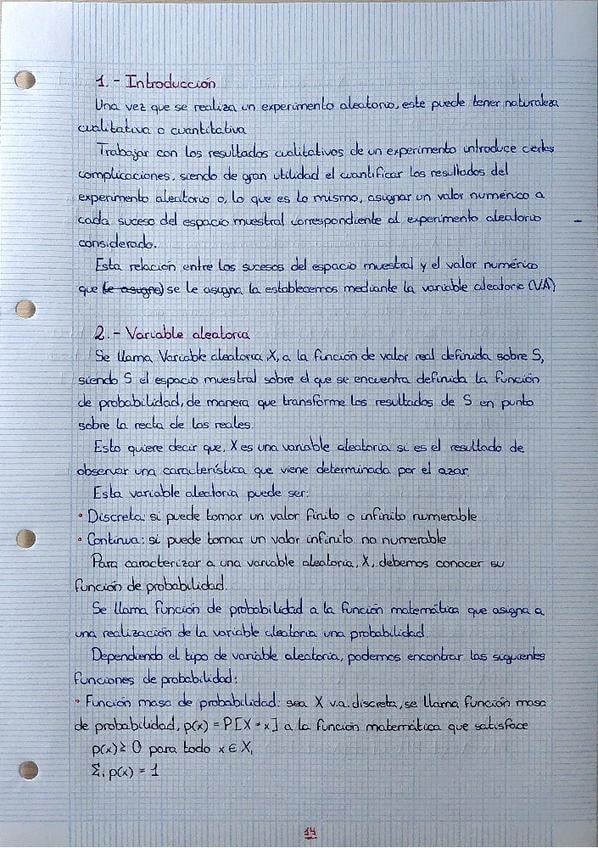 1. - Introducción
Una vez que se realiza un experimento aleatorio, este puede tener naturaleza
cualitativa o cuantitativa
Trabajar con los resultados cualitativos de un experimento introduce ciertas
complicaciones, siendo de gran utilidad el cuantificar los resultados del
experimento aleatorio o, lo que es lo mismo, asignar un valor numérico a
cada suceso del espacio muestral correspondiente al experimento aleatorio
considerado.
Esta relación entre los sucesos del espacio muestral y el valor numérico
que le asigna) se le asigna la establecemos mediante la variable aleatoria (VA)
2. - Variable aleatoria
Se llama Variable aleatoria X, a la función de valor real definida sobre S,
siendo S el espacio muestral sobre el que se encuentra definida la función
de probabilidad, de manera que transforme los resultados de S en punto
sobre la recta de los reales.
Esto quiere decir que, X es una variable aleatoria si es el resultado de
observar una característica que viene determinada por el azar.
Esta variable aleatoria puede ser:
• Discreta: si puede tomar un valor finito o infinito numerable
• Continua: si puede tomar un valor infinito no numerable
Para caracterizar a una variable aleatoria, X, debemos conocer su
función de probabilidad.
Se llama función de probabilidad a la función matemática que asigna a
una realización de la variable aleatoria una probabilidad
Dependiendo el tipo de variable aleatoria, podemos encontrar las siguientes
funciones de probabilidad:
• Función masa de probabilidad: sea X v.a. discreta, se llama función masa
de probabilidad, p(x) = P[X = x] a la función matemática que satisface
p(x) ≥ 0 para todo x ∈ X,
Σᵢ p(x) = 1
14